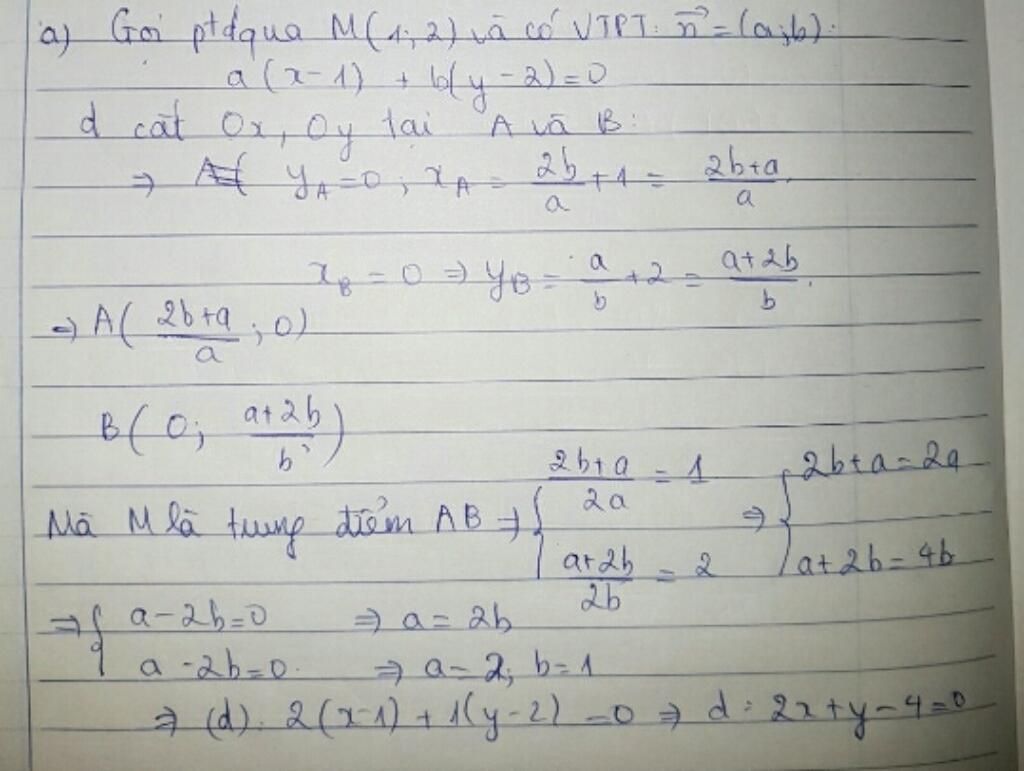 a) Gọi ptđqua M(1;2) và có VTPT: n⃗ = (a;b):
a(x-1) + b(y-2)=0
d cắt Ox, Oy tại A và B:
⇒ y_A=0; x_A = 2b/a + 1 = (2b+a)/a.
x_B = 0 ⇒ y_B = a/b + 2 = (a+2b)/b.
⇒ A((2b+a)/a; 0)
B(0; (a+2b)/b)
Mà M là trung điểm AB ⇒ { (2b+a)/2a = 1 ⇒ { 2b+a=2a
(a+2b)/2b = 2 a+2b=4b
⇒ { a-2b=0 ⇒ a=2b
a-2b=0. ⇒ a=2; b=1
⇒ (d): 2(x-1)+1(y-2)=0 ⇒ d: 2x+y-4=0